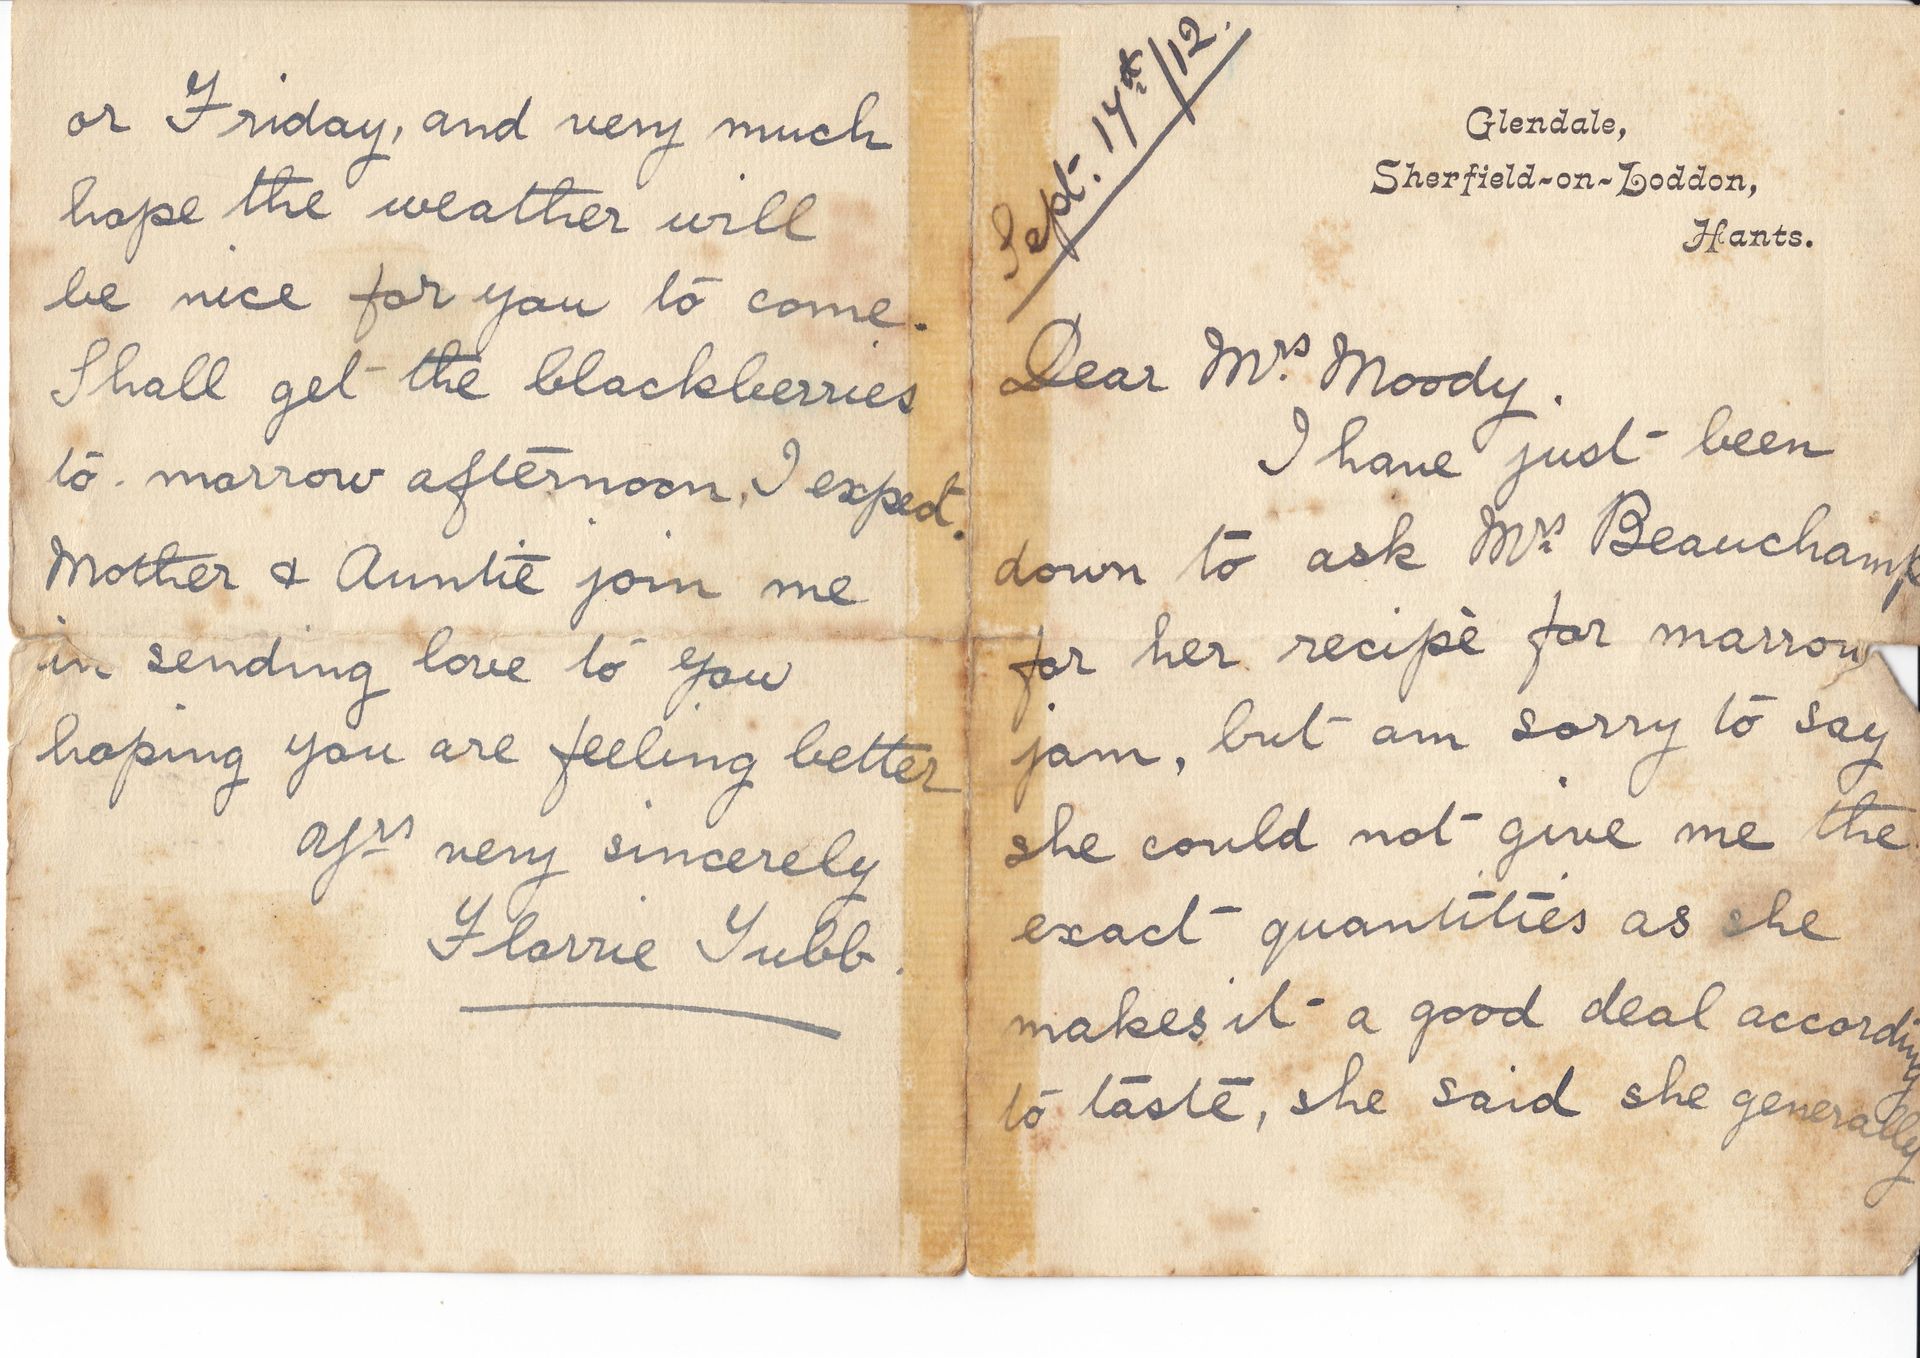 Sept. 17th/12.
Glendale,
Sherfield-on-Loddon,
Hants.
Dear Mrs. Moody.
I have just been
down to ask Mrs. Beauchamp
for her recipè for marrow
jam, but am sorry to say
she could not give me the
exact quantities as she
makes it a good deal according
to taste, she said she generally
or Friday, and very much
hope the weather will
be nice for you to come.
Shall get the blackberries
to-morrow afternoon, I expect.
Mother & Auntie join me
in sending love to you
hoping you are feeling better
Yrs very sincerely
Florrie Tubb.